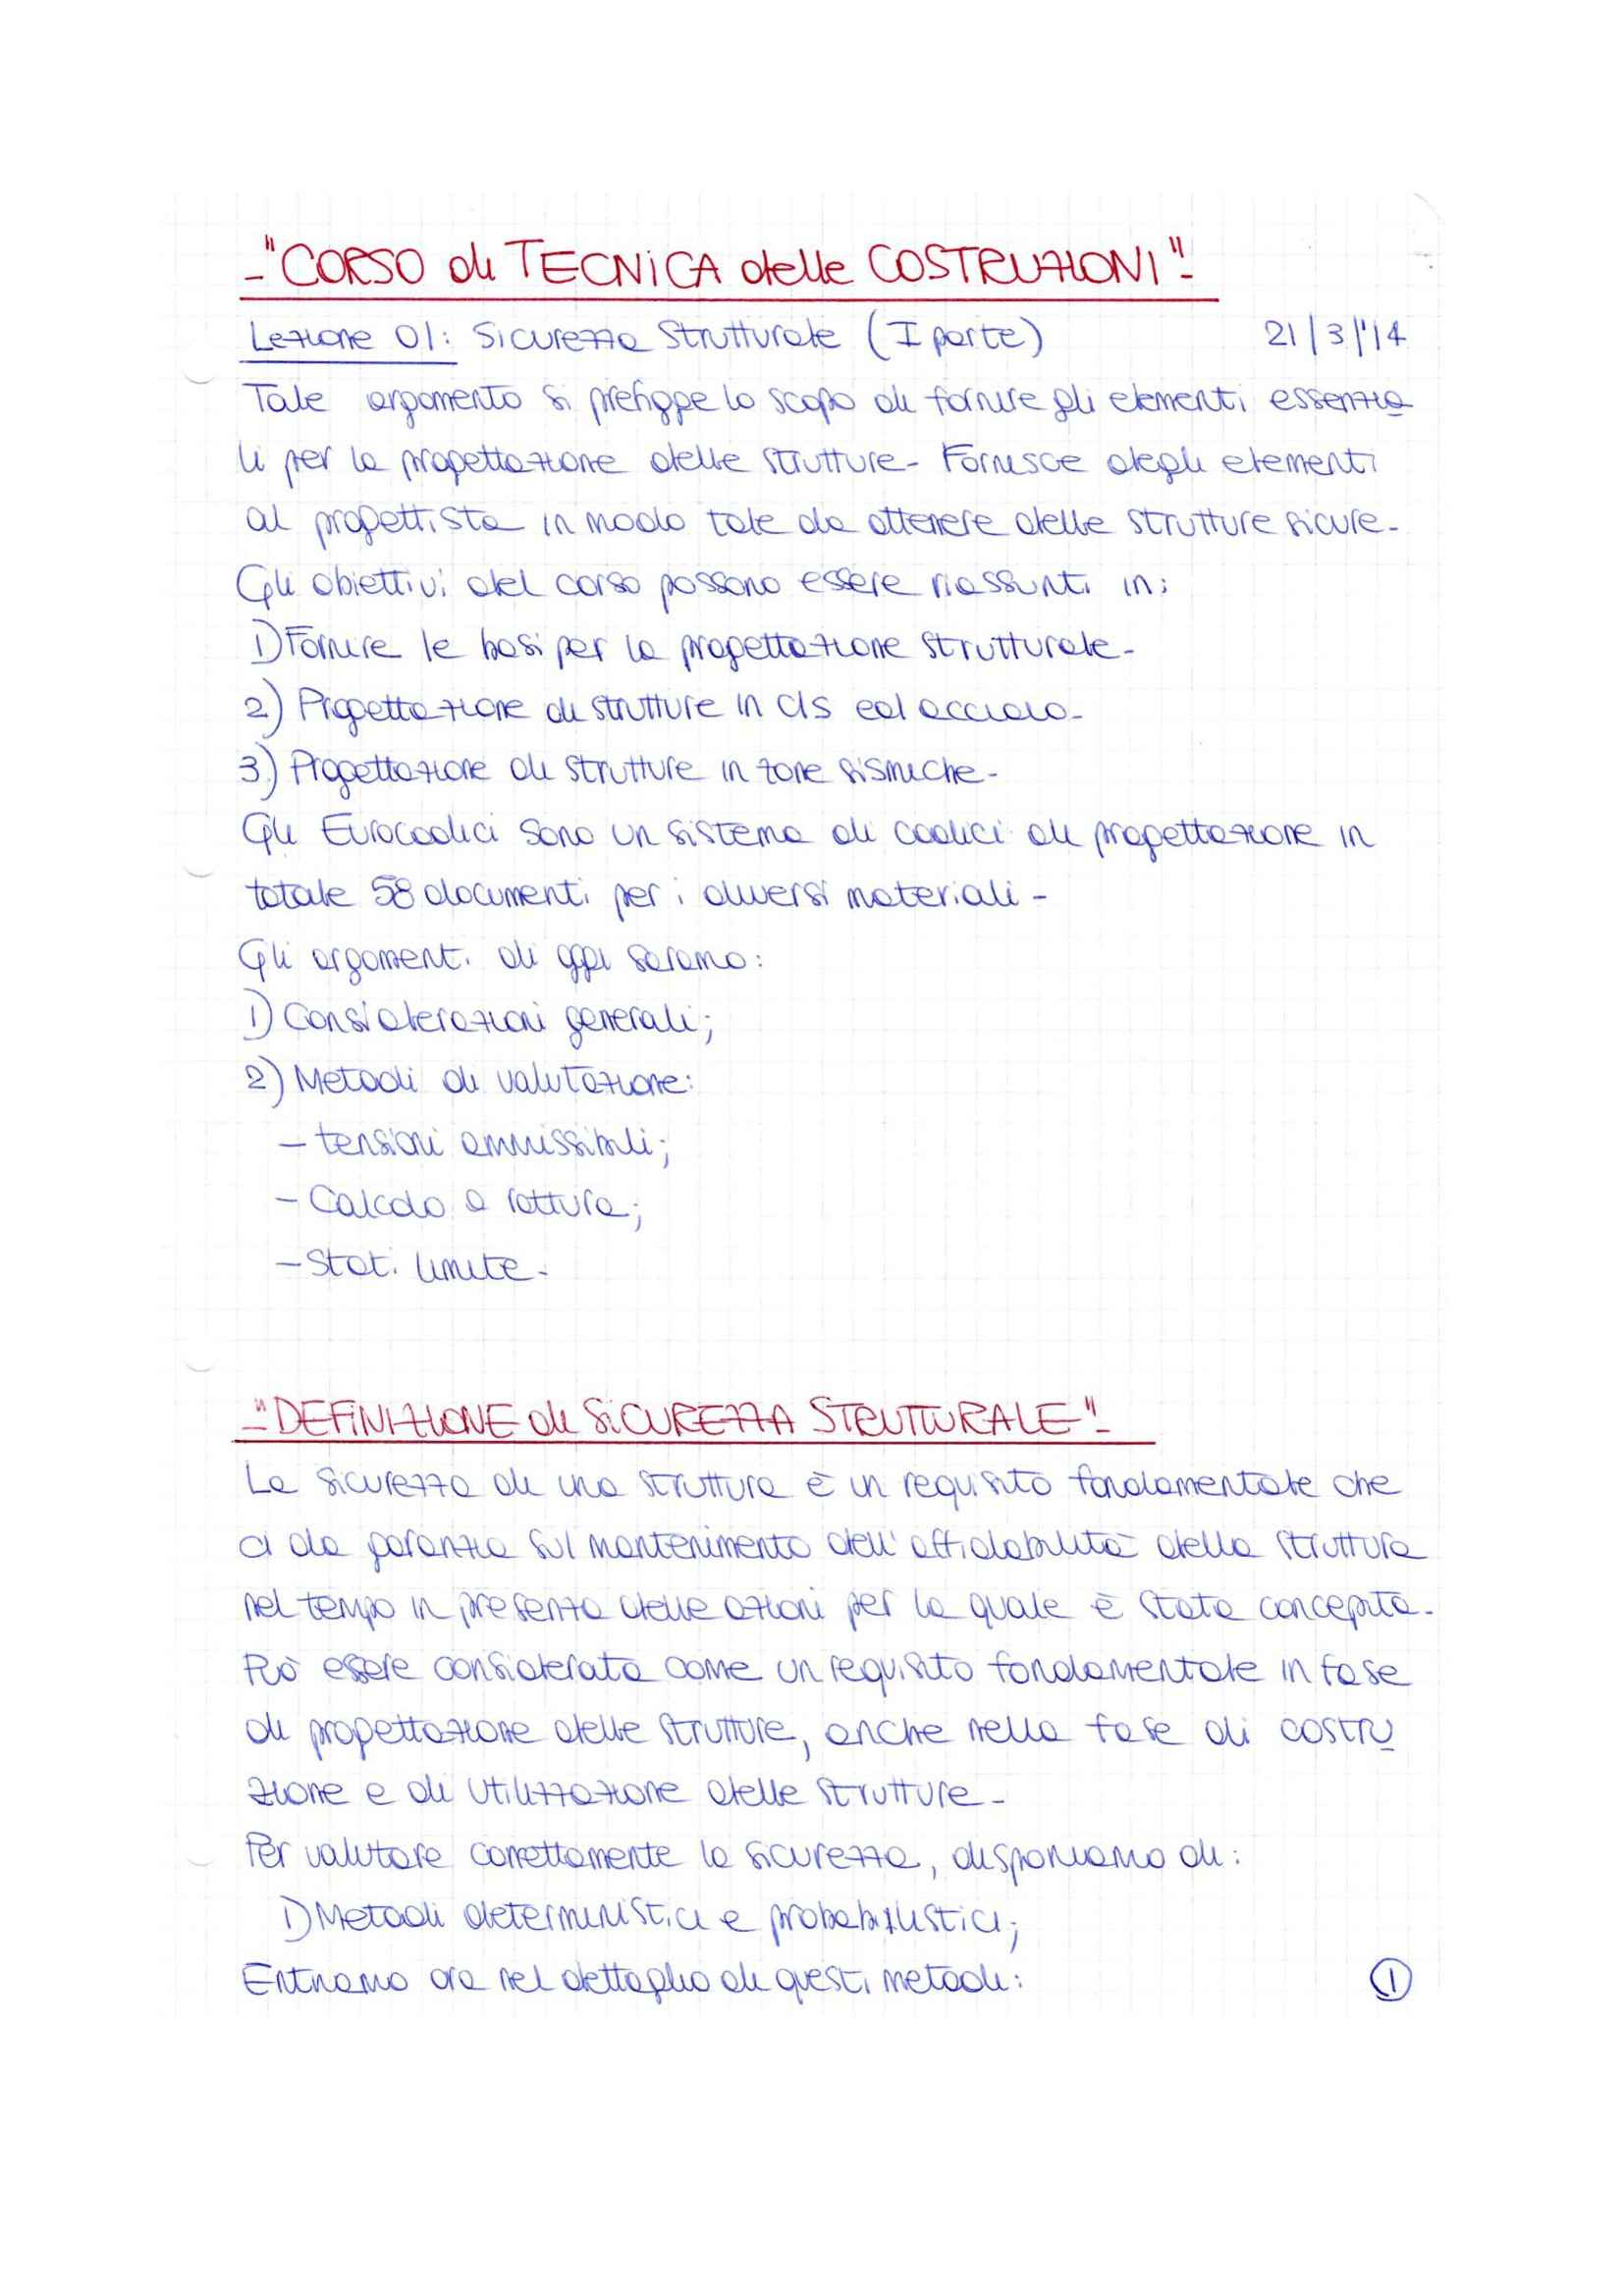 -"CORSO di TECNICA delle COSTRUZIONI"-
Lezione 01: Sicurezza Strutturale (I parte) 21/3/'14
Tale argomento si prefigge lo scopo di fornire gli elementi essenzia
li per la progettazione delle strutture- Fornisce degli elementi
al progettista in modo tale da ottenere delle strutture sicure-
Gli obiettivi del corso possono essere riassunti in:
1) Fornire le basi per la progettazione strutturale-
2) Progettazione di strutture in cls ed acciaio-
3) Progettazione di strutture in zone sismiche-
Gli Eurocodici sono un sistema di codici di progettazione in
totale 58 documenti per i diversi materiali-
Gli argomenti di ggi saranno:
1) Considerazioni generali;
2) Metodi di valutazione:
- tensioni ammissibili;
- Calcolo a rottura;
- Stati limite-
-"DEFINIZIONE di SICUREZZA STRUTTURALE"-
La sicurezza di una struttura è un requisito fondamentale che
ci da garanzia sul mantenimento dell'affidabilità della struttura
nel tempo in presenza delle azioni per la quale è stata concepita-
Può essere considerata come un requisito fondamentale in fase
di progettazione delle strutture, anche nella fase di costru
zione e di utilizzazione delle strutture-
Per valutare correttamente la sicurezza, disponiamo di:
1) Metodi deterministici e probabilistici;
Entriamo ora nel dettaglio di questi metodi: 1